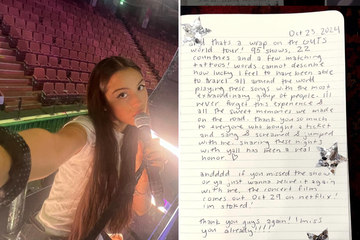 Oct 23, 2024
and thats a wrap on the GUTS
world tour! 95 shows, 22
countries and a few matching
tattoos! words cannot describe
how lucky i feel to have been able
to travel all around the world
playing these songs with the most
extraordinary group of people. ill
never forget this experience &
all the sweet memories we made
on the road. thank you so much
to everyone who bought a ticket
and sang & screamed & jumped
with me. sharing these nights
with yall has been a real
honor.
andddd if you missed the show
or ya just wanna relive it again
with me, the concert film
comes out Oct 29 on netflix!
im stoked!
thank you guys again! i miss
you already!!!!!